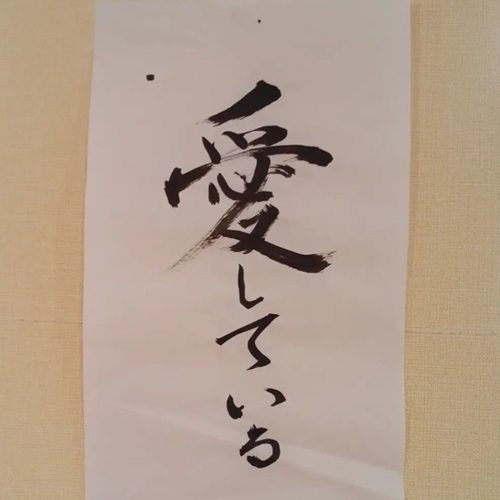 愛している